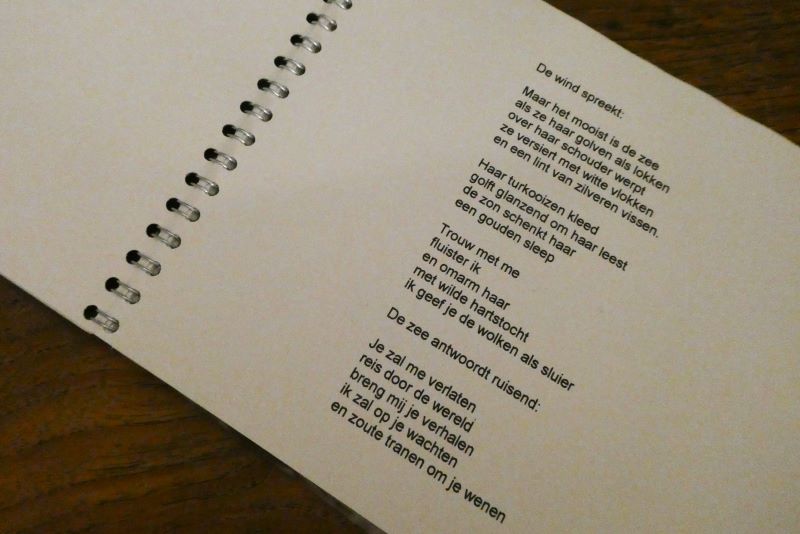 De wind spreekt:
Maar het mooist is de zee
als ze haar golven als lokken
over haar schouder werpt
ze versiert met witte vlokken
en een lint van zilveren vissen.
Haar turkooizen kleed
golft glanzend om haar leest
de zon schenkt haar
een gouden sleep
Trouw met me
fluister ik
en omarm haar
met wilde hartstocht
ik geef je de wolken als sluier
De zee antwoordt ruisend:
Je zal me verlaten
reis door de wereld
breng mij je verhalen
ik zal op je wachten
en zoute tranen om je wenen